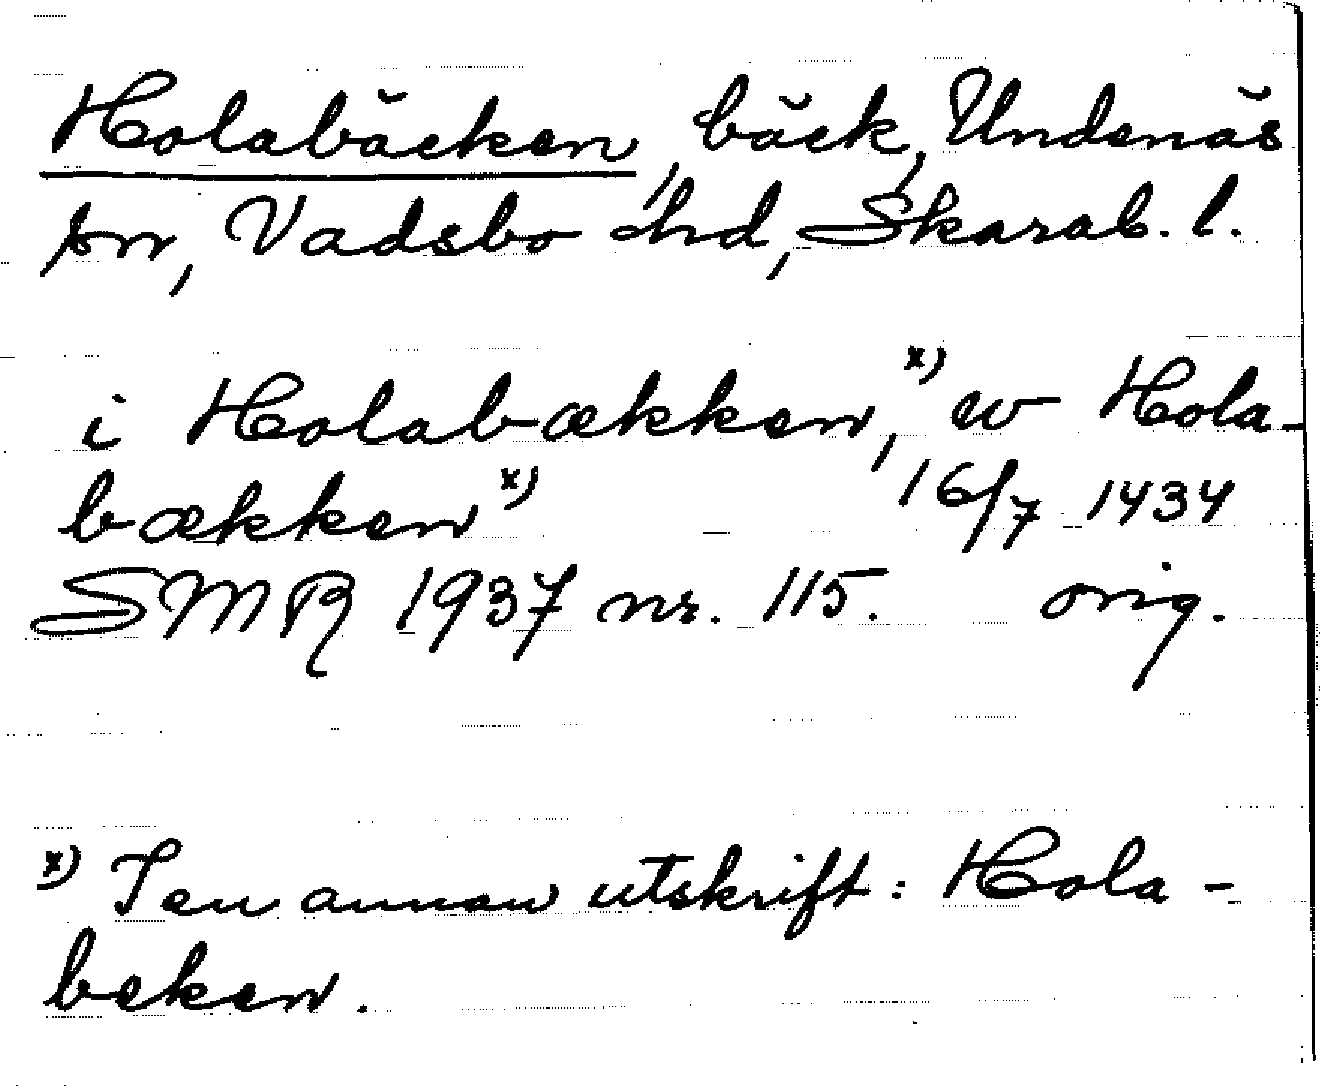 Holabäcken, bäck, Undenäs
sn, Vadsbo hd, Skarab. l.
i Holabækken,x) w Hola-
bækkenx) 16/7 1434
SMR 1937 nr. 115. orig.
x) I en annan utskrift: Hola-
beken.